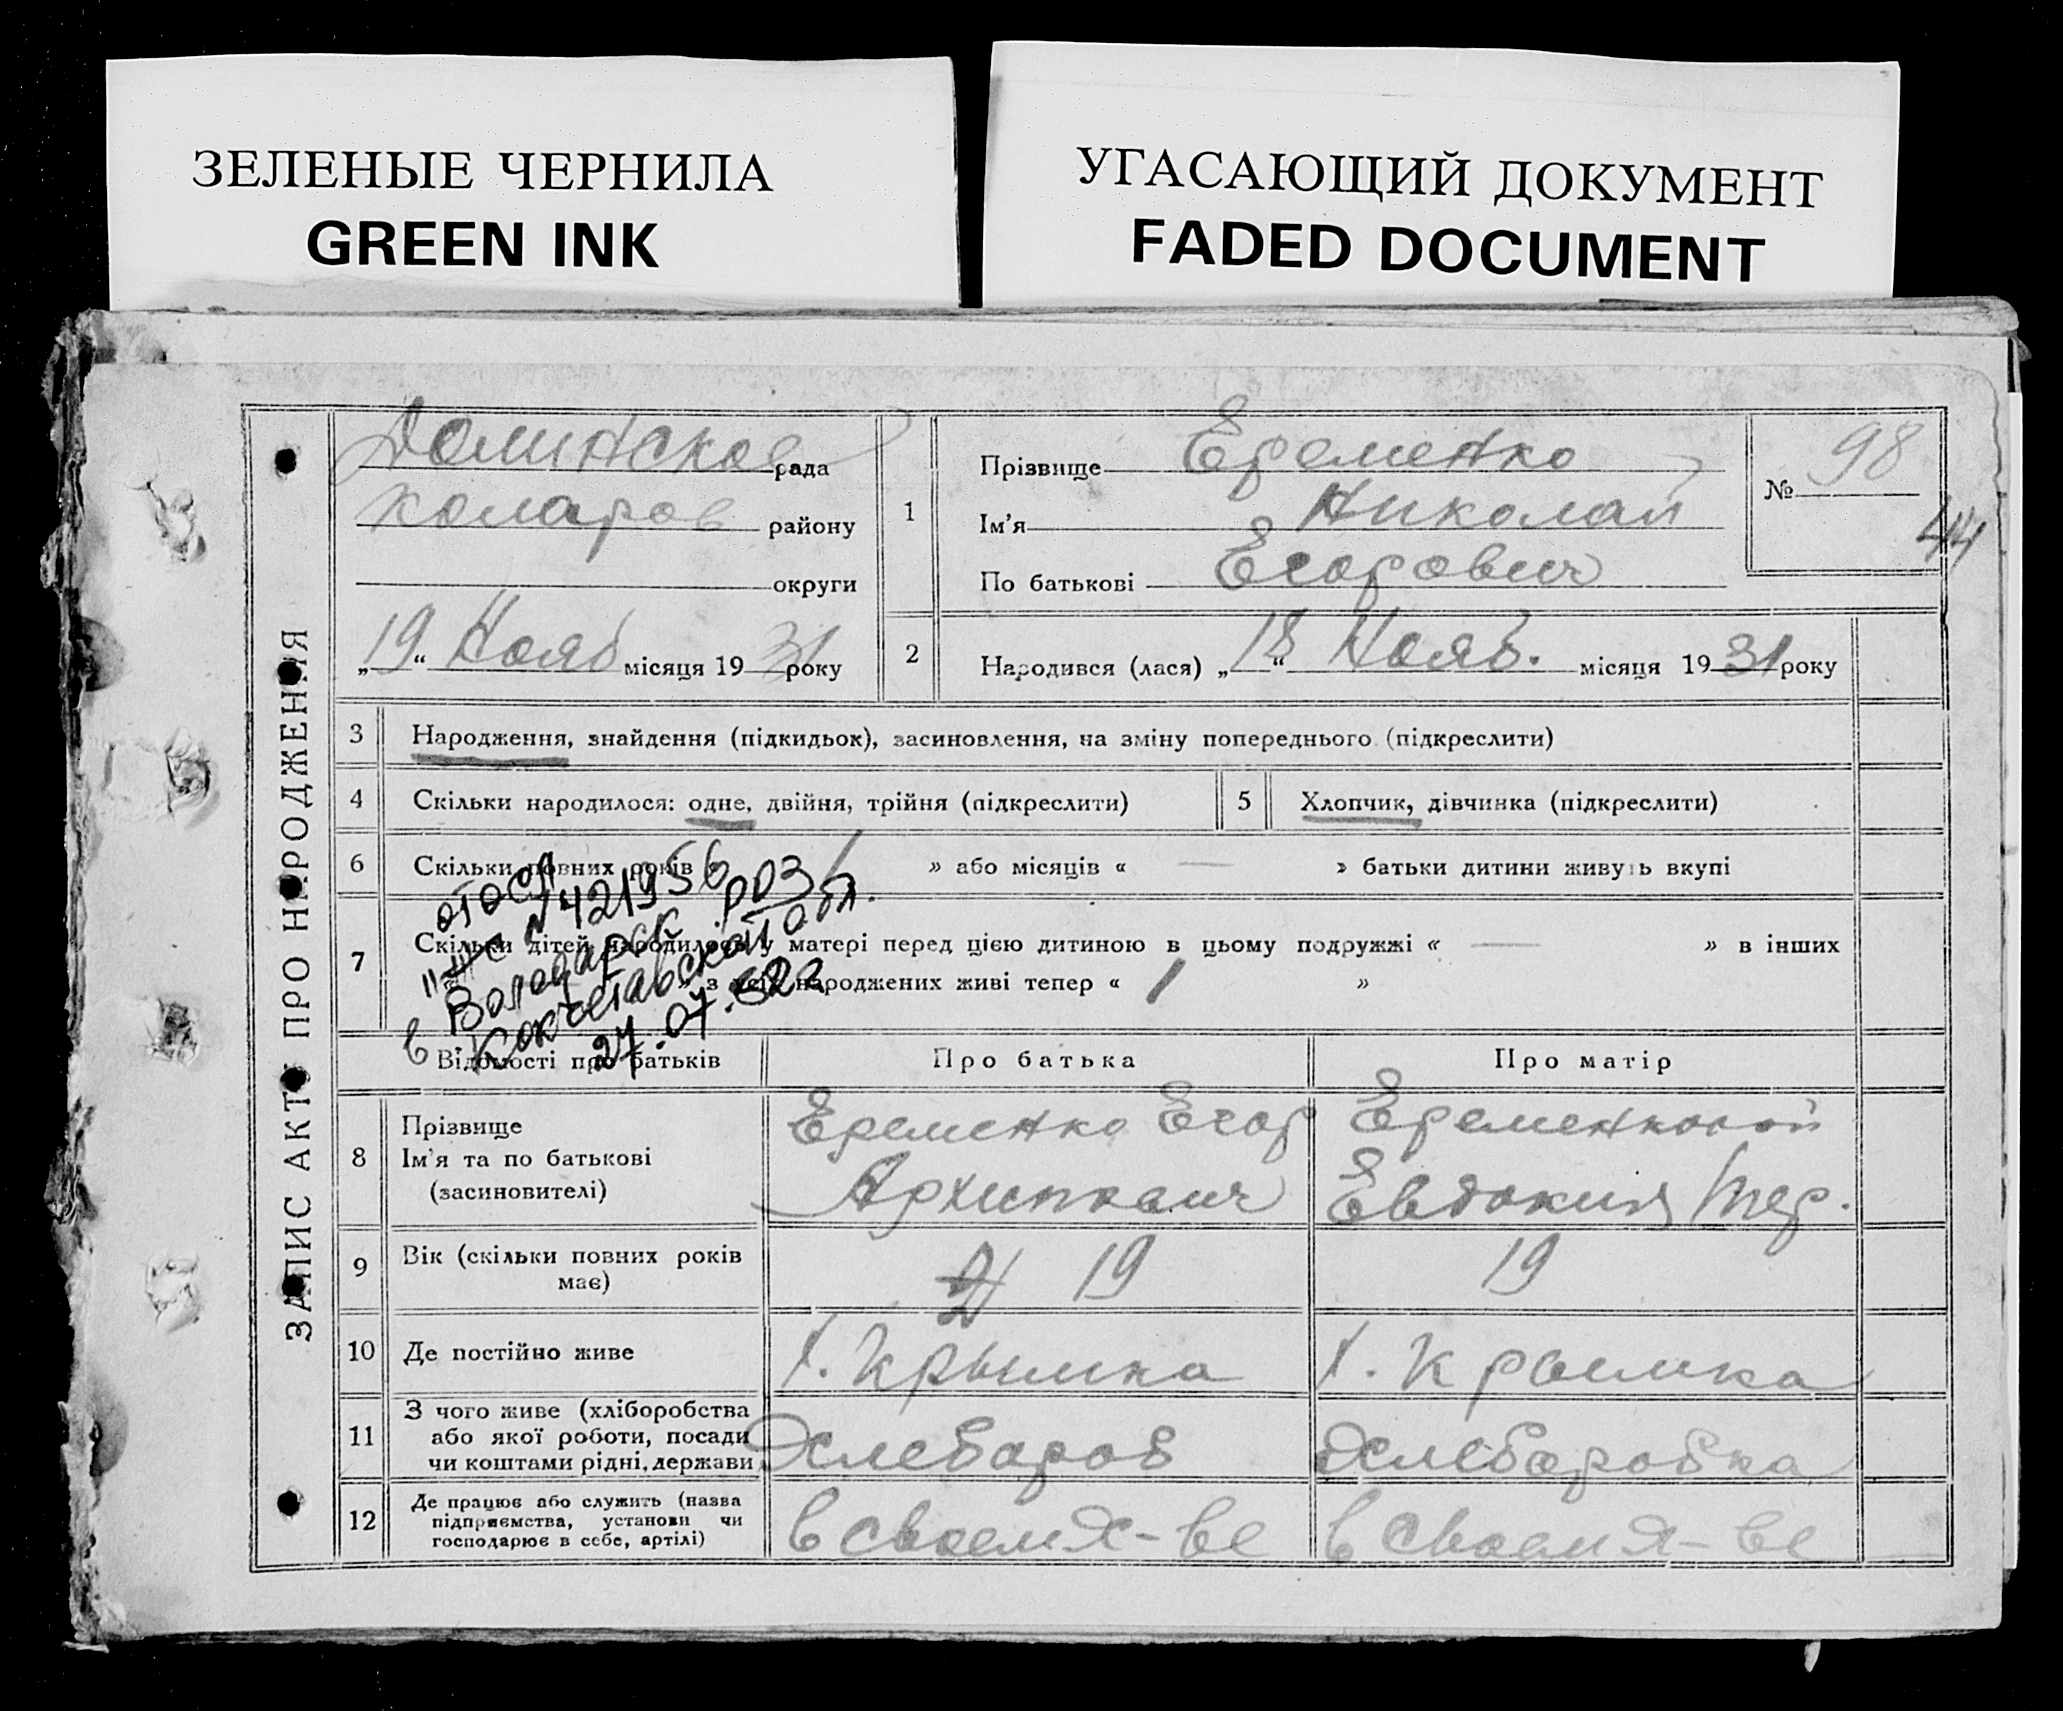 ЗЕЛЕНЫЕ ЧЕРНИЛА
GREEN INK
УГАСАЮЩИЙ ДОКУМЕНТ
FADED DOCUMENT
ЗАПИС АКТУ ПРО НАРОДЖЕННЯ
Долинское рада
Коларов району
округи
„19“ Нояб місяця 1931 року
1
Прізвище Еременко
Ім'я Николай
По батькові Егорович
№ 98
44
2 Народився (лася) „18“ Нояб. місяця 1931 року
3 Народження, знайдення (підкидьок), засиновлення, на зміну попереднього (підкреслити)
4 Скільки народилося: одне, двійня, трійня (підкреслити)
5 Хлопчик, дівчинка (підкреслити)
6 Скільки повних років 1 » або місяців « — » батьки дитини живуть вкупі
7 Скільки дітей народилось у матері перед цією дитиною в цьому подружжі « — » в інших
» з усіх народжених живі тепер « 1 »
№421956
в Володарск. РОЗ
Кокчетавской обл.
27.07.
Відомості про батьків
Про батька
Про матір
8 Прізвище
Ім'я та по батькові
(засиновителі)
Еременко Егор
Архипович
Еременковой
Евдокия
9 Вік (скільки повних років має)
19
19
10 Де постійно живе
х. Крымка
х. Крымка
11 З чого живе (хліборобства
або якої роботи, посади
чи коштами рідні, держави
Хлебароб
Хлебаробка
12 Де працює або служить (назва
підприємства, установи чи
господарює в себе, артілі)
в своем х-ве
в своем х-ве